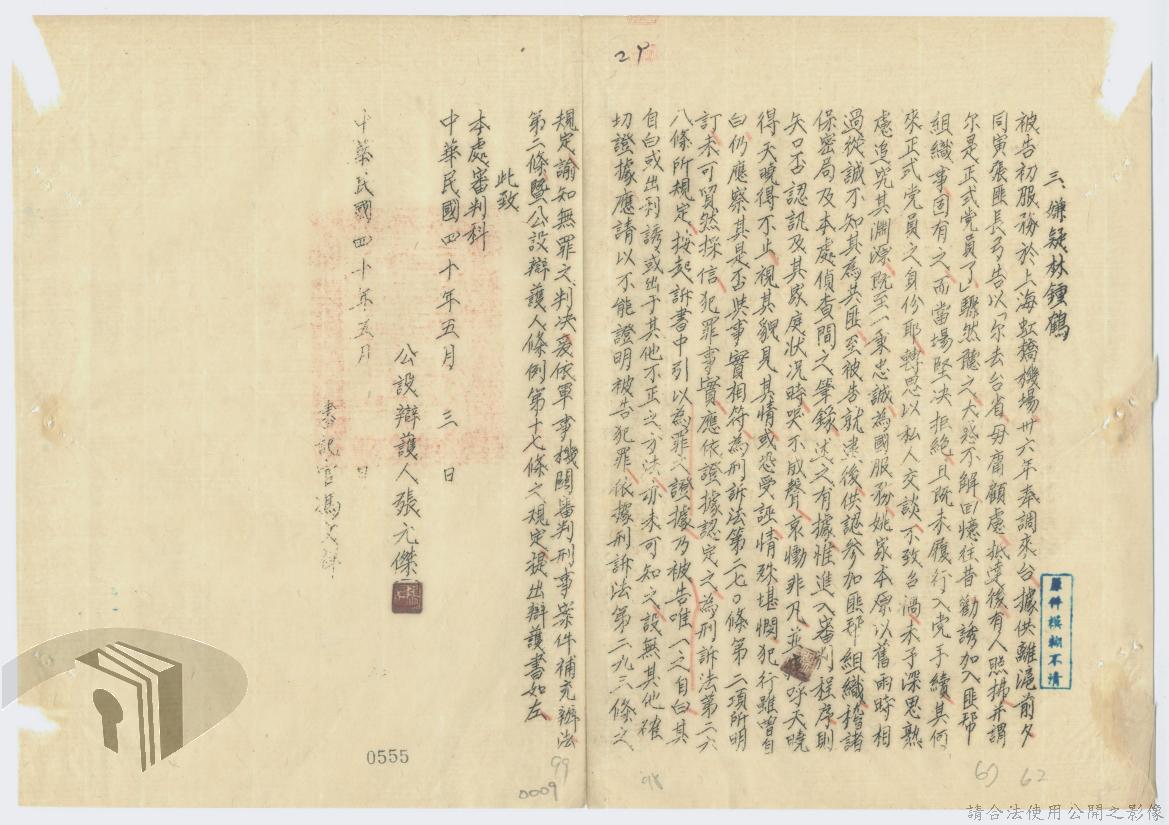 29
三、嫌疑林鍾鶴
被告初服務於上海虹橋機場卅六年奉調來台據供離滬前夕
同寅張匪長弓告以「尔去台省毋庸顧慮抵達後有人照拂并謂
尔是正式党員了」驟然聽之大惑不解回憶往昔勸誘加入匪帮
組織事固有之而當場堅决拒絶且既未履行入党手續其何
來正式党員之身份耶轉思以私人交談不致召禍未予深思熟
慮追究其淵源既至一秉忠誠為國服務姚家本原以舊雨時相
過從誠不知其為共匪至被告就逮後供認參加匪帮組織稽諸
保密局及本處偵查間之筆錄述之有據惟進入審判程序則
矢口否認訊及其家庭状况時哭不成聲哀慟非凡並呼天曉
得天曉得不止視其貌見其情或恐受誣情殊堪憫犯行雖曾自
白仍應察其是否與事實相符為刑訴法第二七〇條第二項所明
訂未可貿然採信犯罪事實應依證據認定之為刑訴法第二六
八條所規定按起訴書中引以為罪之證據乃被告唯一之自白其
自白或出利誘或出于其他不正之方法亦未可知之設無其他確
切證據應請以不能證明被告犯罪依據刑訴法第二九三條之
規定諭知無罪之判决爰依軍事機關審判刑事案件補充辦法
第二條暨公設辯護人條例第十七條之規定提出辯護書如左
此致
本處審判科
中華民國四十年五月三日
公設辯護人張元傑
中華民國四十年五月 日
書記官馮
原件模糊不清
62
98
99
0009
0555
請合法使用公開之影像